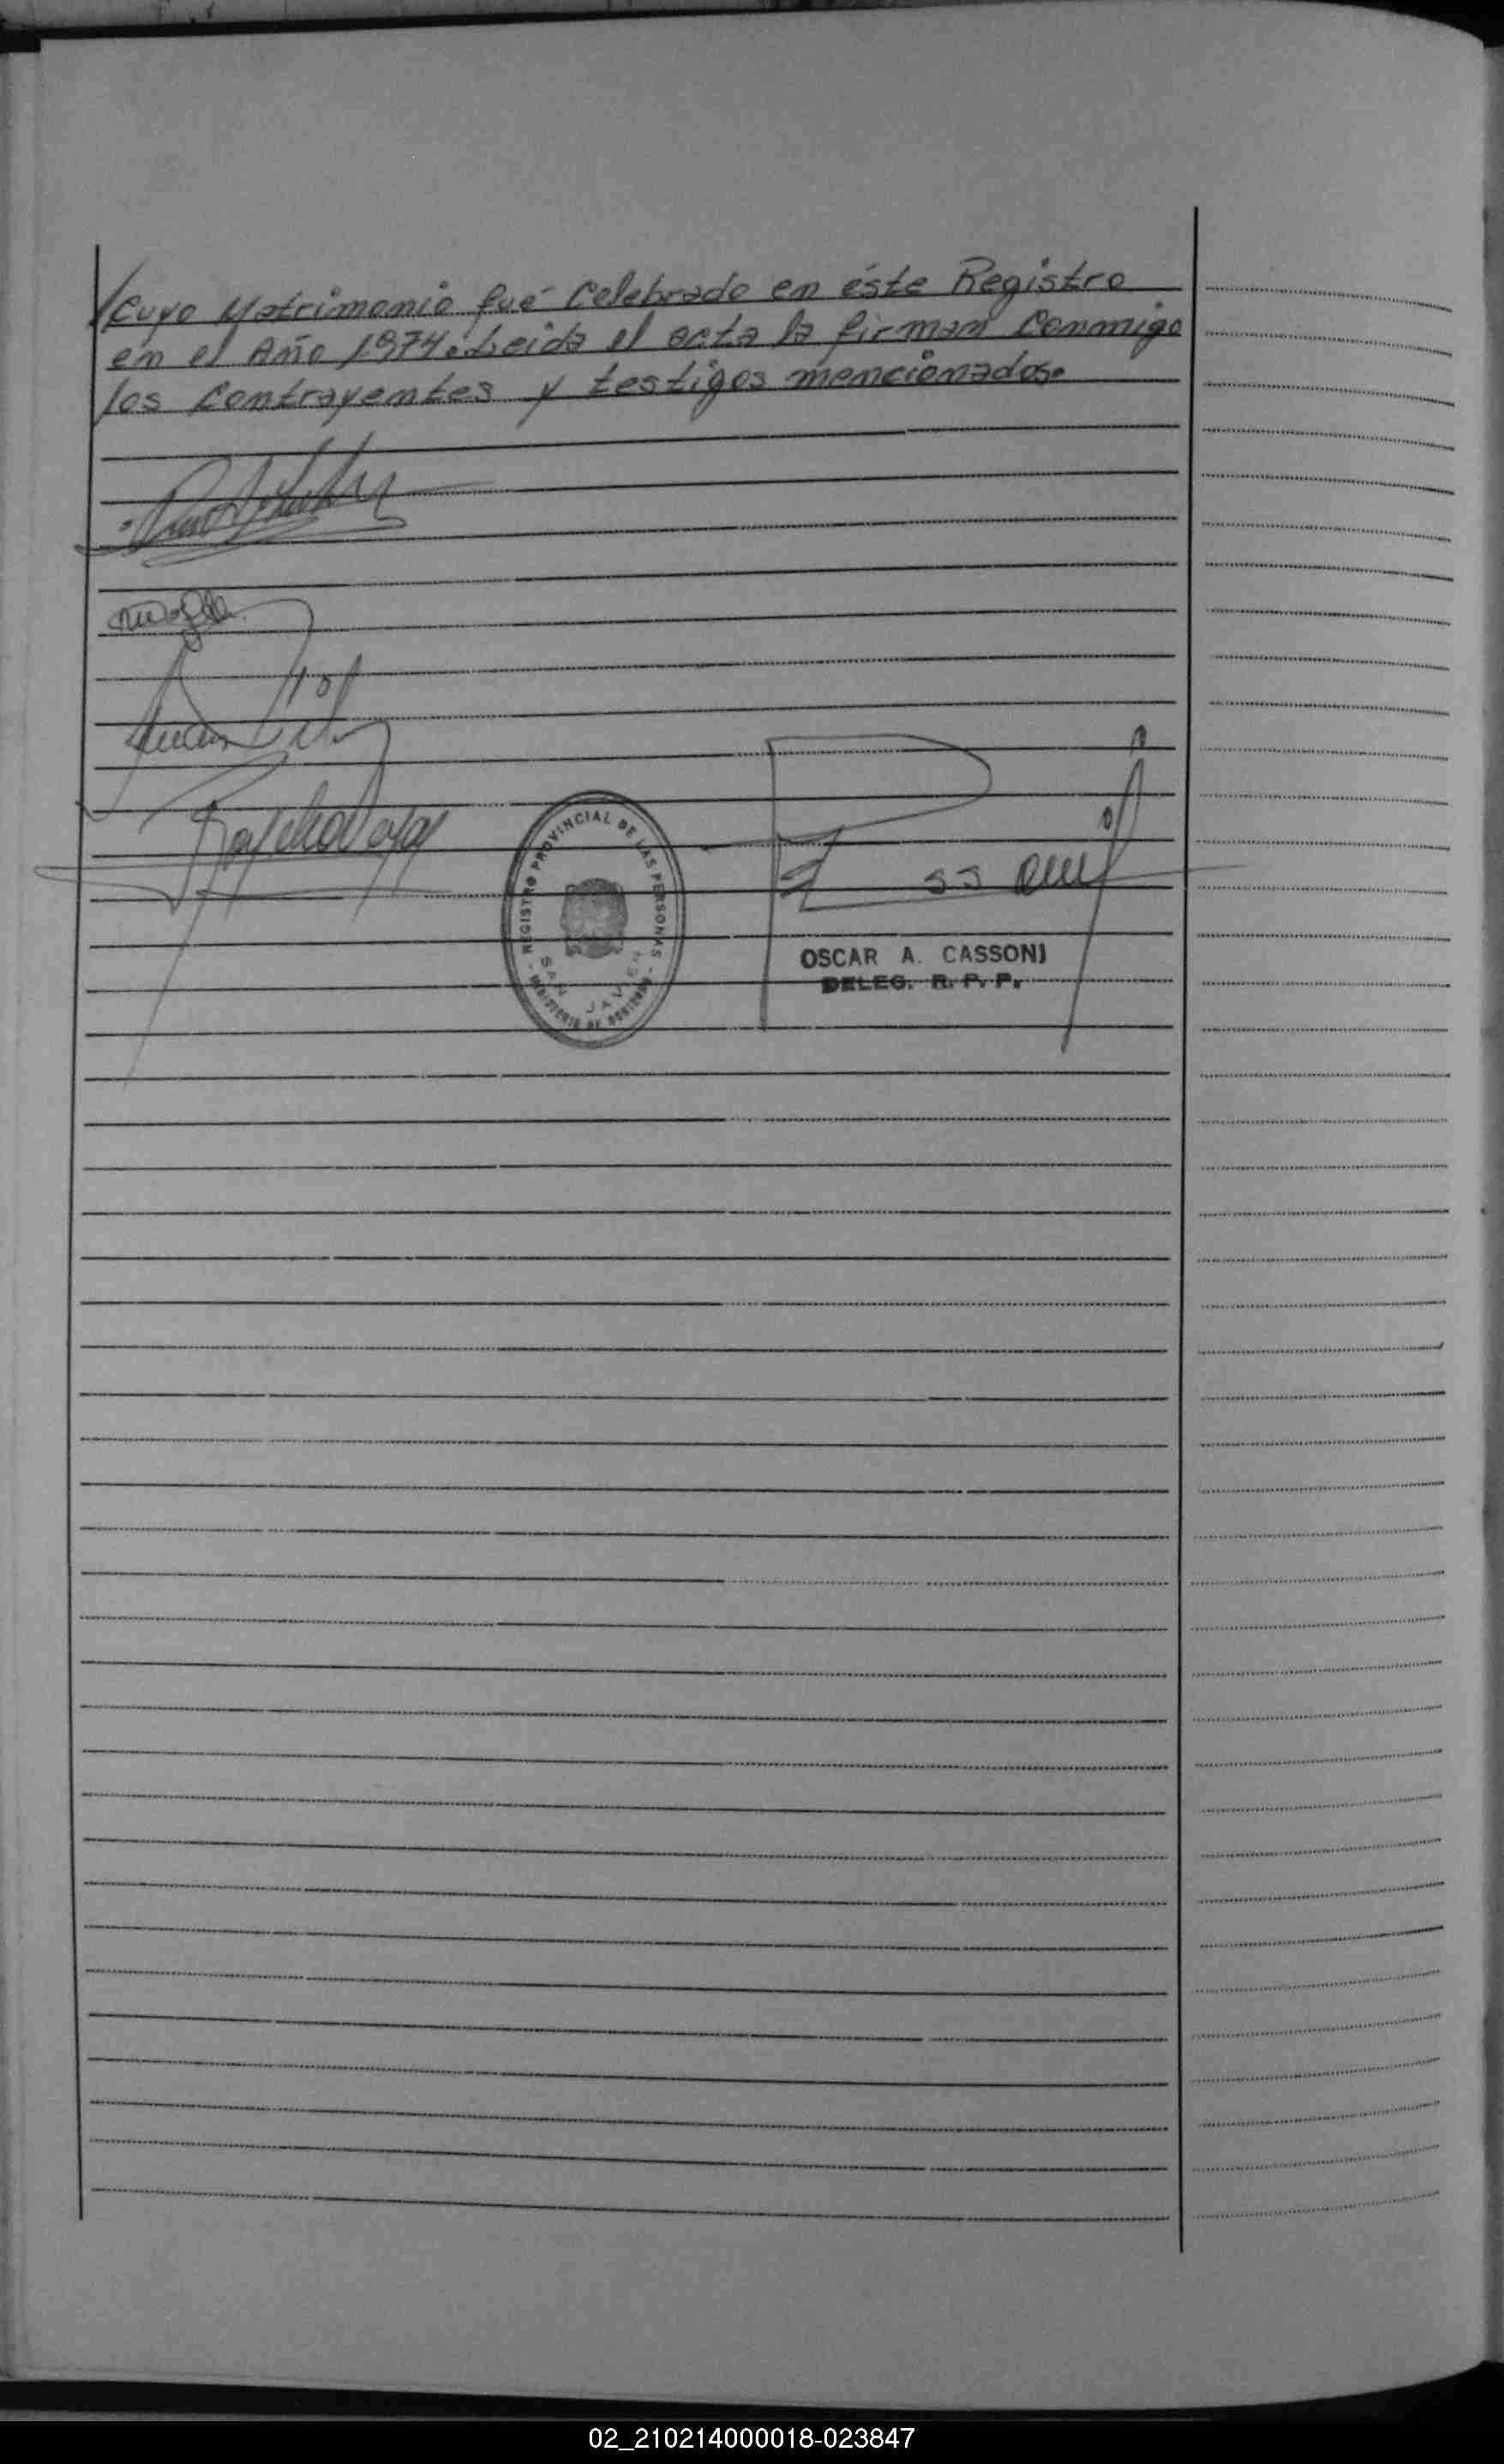 /Cuyo Matrimonio fué Celebrado en éste Registro
en el Año 1974. Leida el acta la firman Conmigo
los Contrayentes y testigos mencionados.
REGISTRO PROVINCIAL DE LAS PERSONAS
SAN JAVIER
MINISTERIO DE GOBIERNO
OSCAR A. CASSONI
DELEG. R. P. P.
02_210214000018-023847